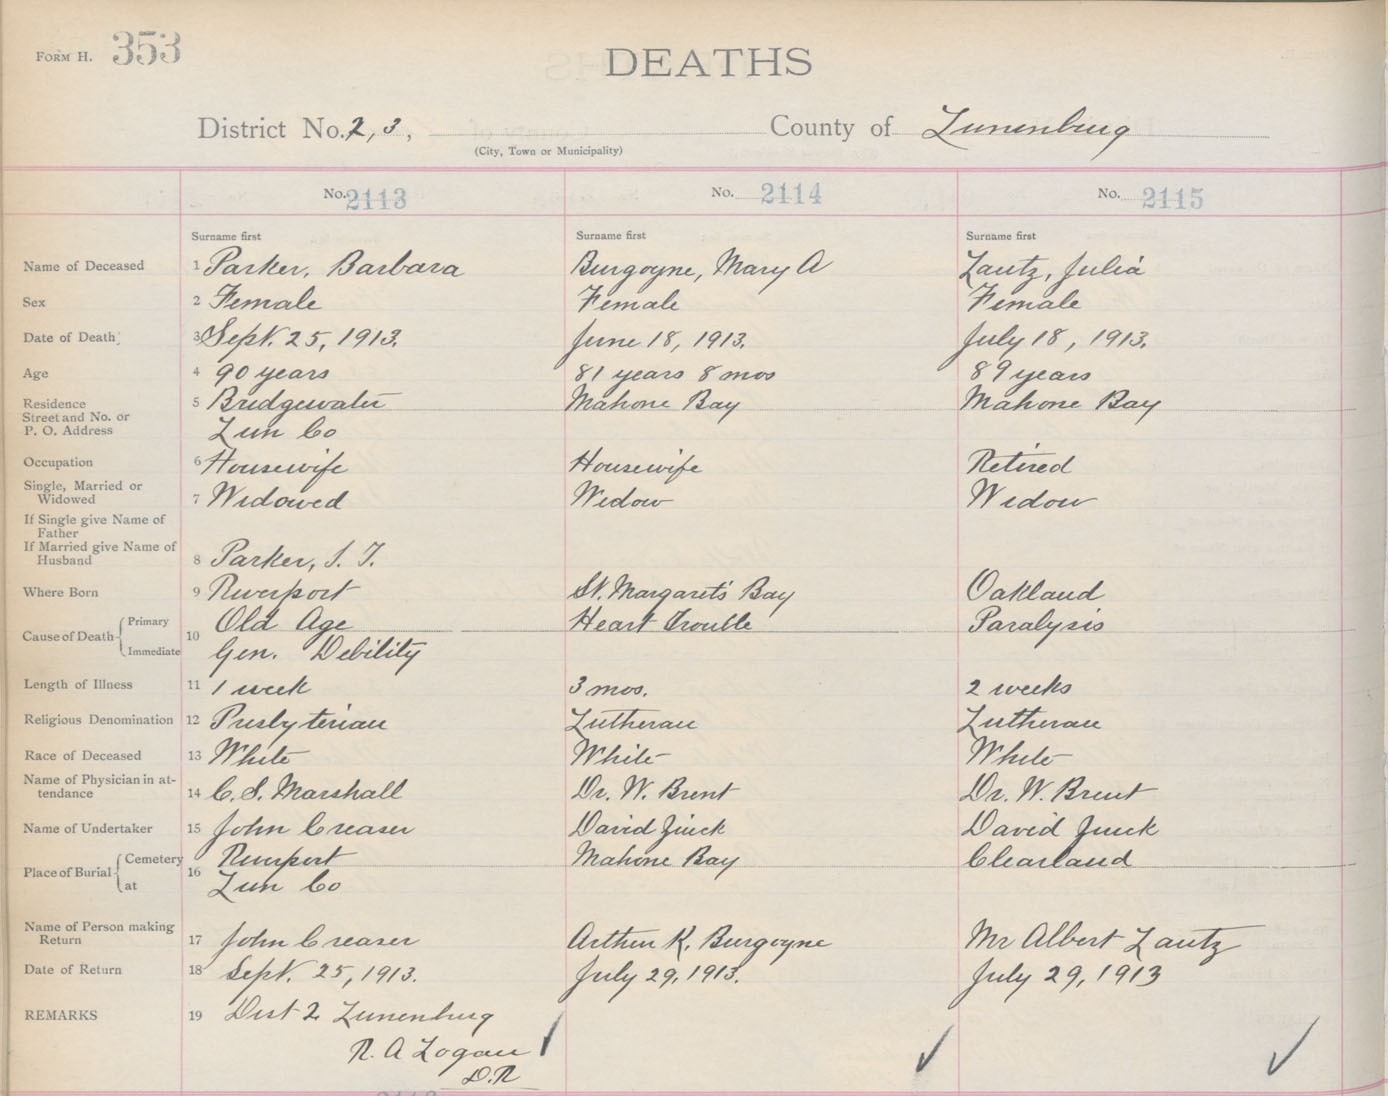 FORM H. 353
DEATHS
District No. 2, 3, County of Lunenburg
(City, Town or Municipality)
No. 2113 No. 2114 No. 2115
Surname first Surname first Surname first
Name of Deceased 1 Parker, Barbara Burgoyne, Mary A Lantz, Julia
Sex 2 Female Female Female
Date of Death 3 Sept. 25, 1913. June 18, 1913. July 18, 1913.
Age 4 90 years 81 years 8 mos 89 years
Residence 5 Bridgewater Mahone Bay Mahone Bay
Street and No. or
P. O. Address Lun Co
Occupation 6 Housewife Housewife Retired
Single, Married or
Widowed 7 Widowed Widow Widow
If Single give Name of
Father
If Married give Name of
Husband 8 Parker, S. T.
Where Born 9 Riverport St. Margaret's Bay Oakland
Cause of Death Primary 10 Old Age Heart Trouble Paralysis
Immediate Gen. Debility
Length of Illness 11 1 week 3 mos. 2 weeks
Religious Denomination 12 Presbyterian Lutheran Lutheran
Race of Deceased 13 White White White
Name of Physician in at-
tendance 14 C. S. Marshall Dr. W. Brent Dr. W. Brent
Name of Undertaker 15 John Creaser David Zinck David Zinck
Place of Burial Cemetery 16 Riverport Mahone Bay Clearland
at Lun Co
Name of Person making
Return 17 John Creaser Arthur K. Burgoyne Mr Albert Lantz
Date of Return 18 Sept. 25, 1913. July 29, 1913. July 29, 1913
REMARKS 19 Dist 2 Lunenburg
R. A Logan
D.R